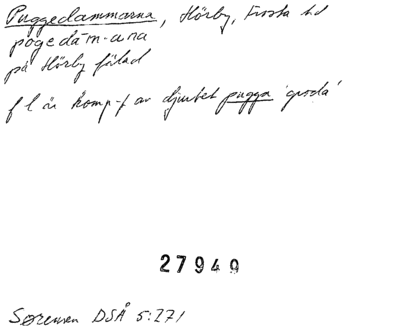 Puggedammarna, Hörby, Frosta hd
pögedam-ana
på Hörby fälad
f l är komp-f av djurbet pugga 'groda'
27949
Sørensen DSÅ 5:271